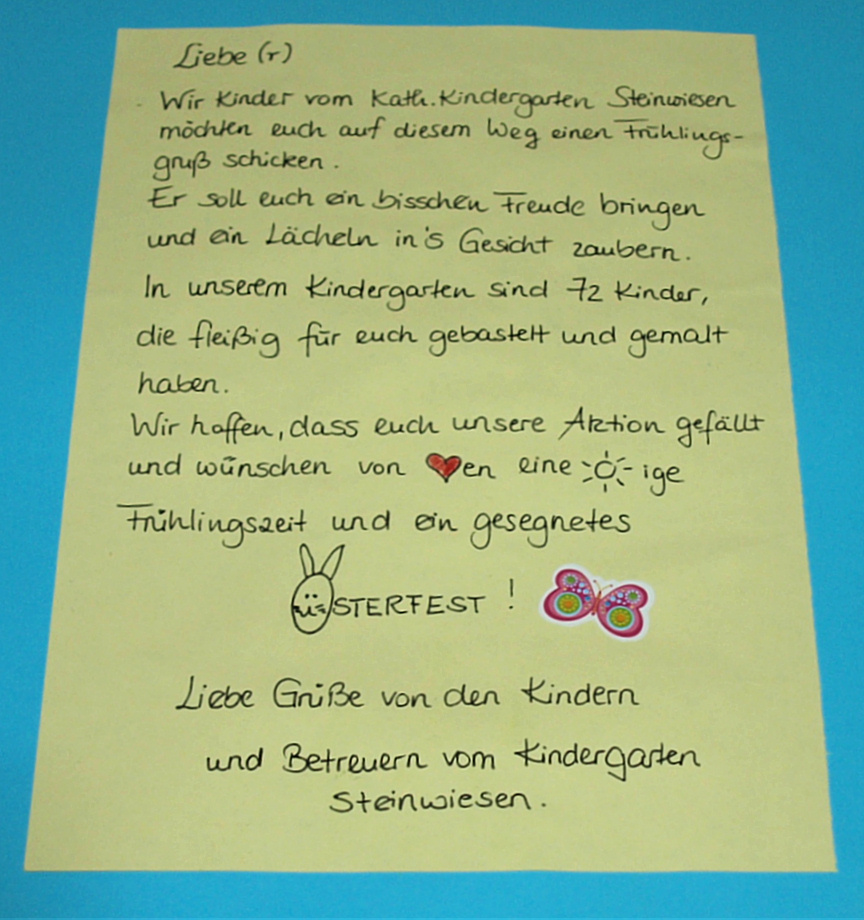 Liebe (r)
Wir Kinder vom Kath. Kindergarten Steinwiesen
möchten euch auf diesem Weg einen Frühlings-
gruß schicken.
Er soll euch ein bisschen Freude bringen
und ein Lächeln in's Gesicht zaubern.
In unserem Kindergarten sind 72 Kinder,
die fleißig für euch gebastelt und gemalt
haben.
Wir hoffen, dass euch unsere Aktion gefällt
und wünschen von ❤en eine ☀ige
Frühlingszeit und ein gesegnetes
OSTERFEST !
Liebe Grüße von den Kindern
und Betreuern vom Kindergarten
Steinwiesen.